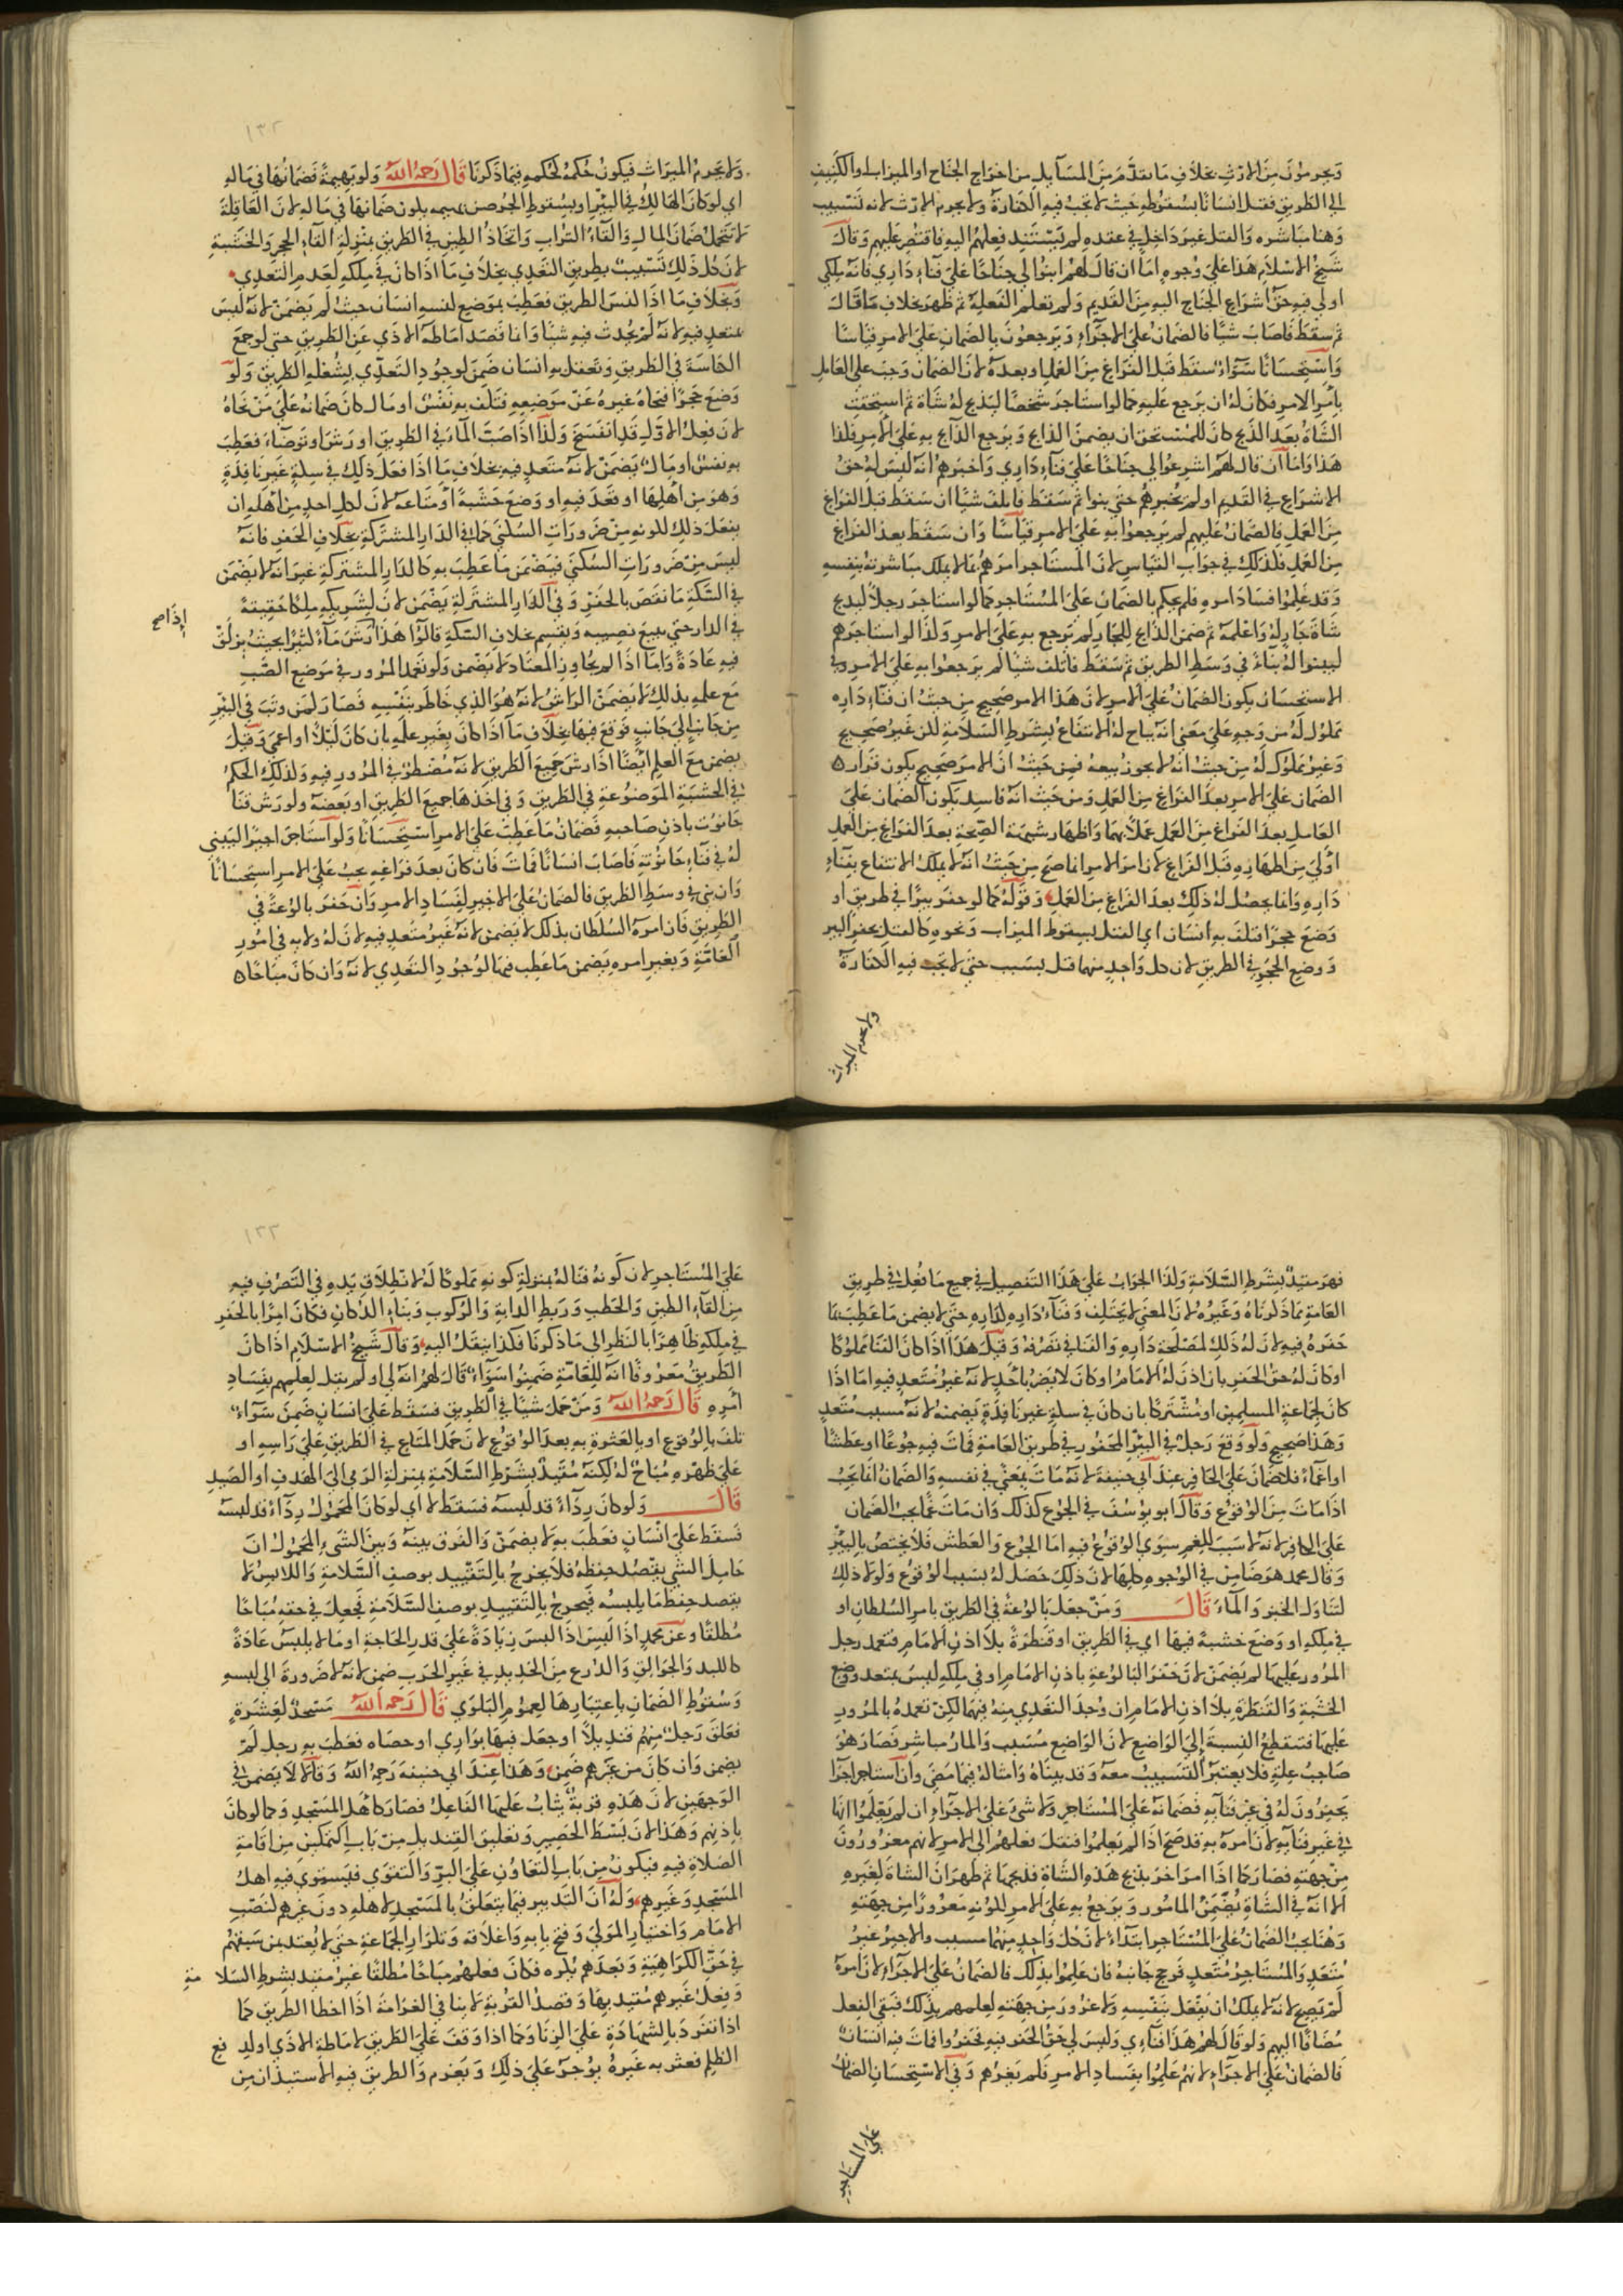 وَيحرمُونَ مِنَ الارثِ بخلافِ مَا تقدَّمَ مِنَ المسَآيلِ من اخراجِ الجنَاحِ او الميزابِ او الكَنِيفِ
الي الطريقِ فقتلَ انسَانًا بسُقُوطِهِ حَيثُ لا تجبُ فيهِ الكفارةُ ولا يحرم الارثَ لانه تَسبيب
وَهنا مبَاشره وَالقتلُ غيرَ دَاخلٍ في عقدهِ لم يَسْتَنِد فِعلهُم اليهِ فاقتصَر عَليهِم وَقالَ
شيخُ الاسْلامِ هَذا عَلي وُجوهٍ امَا ان قالَ لهُم ابنُوا لي جنَاحًا عَلي فنآءِ دَاري فانهُ ملكي
او لي فيهِ حقُّ اشرَاعِ الجنَاحِ اليهِ مِنَ القديمِ وَلم يعلم الفعلَة ثم ظهرَ بخلافِ مَا قالَ
ثم سقطَ فَاصَابَ شيًا فالضمانُ عليَ الاجرَآءِ وَيرجعُونَ بالضمَانِ عَليَ الامرِ قيَاسًا
وَاسْتحسَانًا سَوَآءٌ سقطَ قبلَ الفَراغِ مِنَ العَملِ او بعدَهُ لانَ الضمَانَ وَجبَ عَلي العَاملِ
بامْرِ الامرِ فكانَ لهُ ان يَرجعَ عليهِ كما لو استاجرَ شخصًا ليذبحَ لهُ شاةً ثم استحقتِ
الشَّاةُ بعدَ الذبحِ كانَ للمُستحقِ ان يضمنَ الذابحَ وَيرجع الذابحُ بهِ عَليَ الامرِ فكذا
هَذا وَامَا ان قالَ لهُم اشرعُوا لي جنَاحًا عَليَ فنآءِ دَاري وَاخبرَهم انهُ ليسَ لهُ حقُّ
الاشرَاعِ في القديمِ او لم يخبرهُم حتي بنوا ثم سَقطَ فاتلفَ شيًا ان سقطَ قبلَ الفراغِ
مِنَ العَملِ فالضمَانُ عَليهِم لم يَرجعُوا بهِ عَلي الامرِ قيَاسًا وَان سَقط بعدَ الفَراغِ
مِنَ العَملِ فكذلكَ في جَوَابِ القيَاسِ لانَ المستَاجرَ امرَهُم بما لا يملكُ مبَاشرتهُ بنفسهِ
وَقد عَلمُوا فسَادَ امرهِ فلم يحكم بالضمَانِ عَلي المُستَاجرِ كما لو استاجرَ رجلاً ليذبحَ
شاةَ جَارٍ لهُ وَاعلمهُ ثم ضمنَ الذابحُ للجَارِ لم يَرجع بهِ عَلي الامرِ وَلذا لو استاجرَهم
ليبنوا لهُ بنآءً في وَسَطِ الطريقِ ثم سَقطَ فاتلفَ شيًا لم يَرجعُوا بهِ عَلي الامرِ وفي
الاستحسَانِ يكونُ الضمَانُ عَليَ الامرِ لانَ هَذا الامرَ صَحيحٌ مِن حيثُ ان فنآءَ دَارهِ
مملوكٌ لهُ من وَجهٍ عَلي مَعني انهُ يبَاح لهُ الانتفَاعُ بشَرطِ السَّلامةِ لكن غيرُ صَحيحٍ
وَغيرُ مملوكٍ لهُ مِن حَيثُ انهُ لا يجوزُ بيعهُ فمن حَيثُ انَ الامرَ صَحيحٌ يكونُ قرار
الضمانِ عَليَ الامرِ بعدَ الفَراغِ مِنَ العَملِ وَمن حَيثُ انهُ فاسدٌ يكونُ الضمَانُ عَليَ
العَاملِ بعدَ الفَراغِ مِنَ العَملِ عَملاً بهما وَاظهَارُ شبهةِ الصّحةِ بعدَ الفَراغِ مِنَ العَملِ
اوْلي مِن اظهَارهِ قبلَ الفَراغِ لانَ امرَ الامرِ انما صَحَ مِن حَيثُ انهُ لا يملكُ الانتفاع بفِنَآءِ
دَارهِ وَانما يحصلُ لهُ ذلكَ بعدَ الفَراغِ مِنَ العَملِ وَقولُهُ كما لو حفرَ بيرًا في طريقٍ او
وَضعَ حجرًا فتلفَ بهِ انسَان اي القتلُ بسقوطِ الميزاب وَنحوهِ كالقتلِ بحفرِ البيرِ
وَوضعِ الحَجرِ في الطريقِ لان كلَ وَاحدٍ منهما قتل بسَبب حتي لا يَجب فيهِ الكفارةُ
ولا يحرم الميراث
١٣٢
وَلا يَحرمُ الميرَاثَ فيكونُ حُكمهُ كحُكمهِ فيمَا ذَكرنَا قَالَ رَحمهُ اللهُ وَلو بَهيمةً فَضمَانُهَا في مَالهِ
اي لو كانَ الهَالكُ في البيرِ او بسُقوطِ الجُرصنِ بهيمه يكون ضمَانها في مَالهِ لانَ العَاقلةَ
لا تَتحملُ ضمَانَ المالِ وَالقَآءُ الترابِ وَاتخاذُ الطينِ في الطريقِ بمنْزلةِ القآءِ الحجرِ وَالخشَبةِ
لانَ كُلَ ذَلكَ تَسْبيبٌ بطريقِ التَّعدِي بخِلافِ مَا اذَا كانَ في مِلكهِ لعَدمِ التَعدِي
وَبخلافِ مَا اذَا كنسَ الطريقَ فعَطبَ بموضعِ كنسهِ انسَان حيثُ لم يَضمَنْ لانهُ ليسَ
بمتعدٍ فيهِ لانهُ لم يُحدث فيهِ شيًا وَانما قصَدَ امَاطةَ الاذَي عَنِ الطريقِ حتي لو جمعَ
الكناسةَ في الطَريقِ وَتعَقلَ بهِ انسَان ضَمنَ لوجُودِ التَعدِّي بشُغلهِ الطريقَ وَلو
وَضعَ حَجرًا فنحاهُ غيرهُ عَنْ مَوضِعهِ فتَلفَ بهِ نَفْسٌ او مَال كانَ ضمانهُ عَلي مَن نحَاهُ
لانَ فعلَ الاوّلِ قدِ انفسَخَ وَلذَا اذَا صَبَّ المآءَ في الطريقِ او رَشَّ او تَوضَّاءَ فعَطِبَ
بهِ نفسٌ او مَالٌ يَضمَنُ لانهُ متَعدٍ فيهِ بخلافِ مَا اذَا فعلَ ذَلكَ في سِكةٍ غَيرِ نَافِذةٍ
وَهوَ مِن اهْلِهَا او قعَدَ فيهِ او وَضعَ خَشَبةً او مَتَاعهُ لانَ لكلِ احدٍ مِن اهْلهِ ان
يفعَلَ ذلكَ لكونهِ مِن ضرُورَاتِ السّكني كما في الدَارِ المشترَكةِ بخلافِ الحَفرِ فانهُ
ليسَ مِن ضَرورَاتِ السُّكني فيَضمَن مَا عَطِبَ بهِ كالدَارِ المشترَكةِ غيرَ انهُ لا يَضمَن
في السّكةِ مَا نقصَ بالحَفرِ وَفي الدَارِ المشترَكةِ يَضمَن لانَ لشريكهِ مِلكًا حَقِيقةً
في الدارِ حتي يبيعَ نصيبه وَيقسم بخلافِ السّكةِ قالوا هَذا رَشَّ مآءً كثيرًا بحيثُ يزلَقُ
إذَا صح
فيهِ عَادَةً وَامَا اذَا لم يجَاوزِ المُعتَاد لا يَضمَن وَلو تعَمدَ المرُورَ في مَوضعِ الصَّبِ
مَعَ علمهِ بذلكَ لا يَضمَن الراشُ لانهُ هُوَ الذي خَاطرَ بنَفسهِ فصَارَ كمَن وَثبَ في البيرِ
مِن جَانبٍ الي جَانبٍ فوَقعَ فيهَا بخلافِ مَا اذَا كانَ بغيرِ علمهِ بان كانَ ليلاً او اعمَي وَقيلَ
يضمن معَ العلمِ ايضًا اذَا رشَ جَميعَ الطَريقِ لانهُ مُضطرٌ في المرُورِ فيهِ وَكذلكَ الحُكمُ
في الخشَبةِ الموضُوعَةِ في الطريقِ وَفي اخذهَا جميعَ الطَريقِ او بَعضَهُ ولو رَشَ فنَا
حَانوُت باذنِ صَاحبهِ فضَمَانُ مَا عَطِبَ عَليَ الامرِ اسْتحْسَانًا وَلو اسْتَاجرَ اجيرًا ليَبْني
لهُ في فنَآءِ حَانوتهِ فاصَابَ انسَانًا فمَاتَ فانَ كانَ بعدَ فرَاغهِ يجبُ عَليَ الامرِ استحسَانًا
وَان بَني في وسَطِ الطَريقِ فالضمَانُ عَليَ الاجيرِ لفسَادِ الامرِ وَان حَفرَ بالوُعةً في
الطَرِيقِ فان امرهُ السُلطَان بذلك لا يَضمن لانهُ غَيرُ مُتَعدٍ فيهِ لانَ لهُ ولايه في امُورِ
العَامَّةِ وَبغيرِ امرهِ يَضمن مَا عَطِب فيهَا لوُجوُدِ التعَدِي لانهُ وَان كانَ مبَاحًا
فهوَ مقيدٌ بشَرطِ السَّلامَةِ وَكذَا الجوَابُ عَليَ هَذا التفصيلِ في جميعِ مَا فُعِلَ في طَريقِ
العَامةِ مما ذَكرنَاهُ وَغيرُهُ لانَ المعني لا يختَلِف وَفنآءُ دَارهِ كدَارهِ حتي لا يضمن مَا عَطِبَ بما
حَفرَهُ فيهِ لانَ لهُ ذَلكَ لمصْلحَةِ دَارهِ وَالفنَا في تصَرُفهِ وَقيلَ هَذا اذَا كانَ الفنَا مملوُكًا
او كانَ لهُ حقُّ الحَفرِ بان اذنَ لهُ الامَامُ او كانَ لا يضرُ باحَدٍ لانهُ غيرُ مُتَعدٍ فيهِ امَا اذَا
كانَ لجمَاعةِ المسلمينَ او مُشترَكًا بان كانَ في سكةٍ غيرِ نَافِذةٍ يَضمنهُ لانهُ مسبب مُتعَدٍ
وَهَذا صَحيحٍ وَلو وَقعَ رَجلٌ في البيرِ المحفُورِ في طريقِ العَامةِ فماتَ فيهِ جُوعًا او عَطشًا
او غمًّا فلا ضمَانَ عَليَ الحَافرِ عندَ ابي حَنيفةَ لانهُ مَاتَ بمعنًي في نفسهِ وَالضمَانُ انما يجِبُ
اذَا مَاتَ مِنَ الوُقوعِ وَقالَ ابو يوُسُفَ في الجُوعِ كذلك وَان مَاتَ غمًّا يجبُ الضَمان
عَليَ الحافرِ لانهُ لا سَببَ للغمِ سِوَي الوُقوعِ فيهِ امَا الجُوعُ وَالعطَشُ فلا يختصُ بالبيرِ
وَقالَ محمد هوَ ضَامِنٌ في الوُجوهِ كلهَا لانَ ذلكَ حَصَلَ لهُ بسَببِ الوُقوعِ وَلولا ذلكَ
لتَنَاوَلَ الخبزَ وَالمآءَ قَالَ وَمَن جعَلَ بَالوُعةً في الطَريقِ بامرِ السُلطانِ او
في مِلكهِ او وَضعَ خشبةً فيهَا اي في الطَريقِ او قنطرةً بلا اذنِ الامَامِ فتعمدَ رجل
المرُورَ عَليهَا لم يَضمَن لانَ حَفرَ البَالوُعةِ باذنِ الامَامِ او في مِلكهِ ليسَ بتعدٍ ووضع
الخشَبةِ وَالقَنطرَةِ بلا اذنِ الامَامِ وان وُجدَ التعَدِي مِنهُ فيهمَا لكنْ تعمدُه بالمرُورِ
عليهَا تنقطعُ النِسبةَ اِليَ الوَاضعِ لانَ الوَاضِعَ مُسَببٌ وَالمارُ مبَاشِرٌ فصَارَ هوَ
صَاحبُ علةٍ فلا يعتبرُ التَسبيبُ معَهُ وَقد بيناهُ وَامثالهُ فيمَا مَضيَ وَانِ استَاجرَ اجرَآءَ
يحفِرُونَ لهُ في غيرِ فنَآئهِ فضمَانهُ عَليَ المُستَاجرِ وَلا شيَ عَليَ الاجرَآءِ ان لم يَعلمُوا انهَا
في غيرِ فنَآئهِ لانَ امرهُ بهِ قد صَحَ اذَا لم يَعلمُوا فنقلَ فعلهُم الي الامرِ لانهم مغرُورُونَ
مِن جِهتهِ فصَارَ كما اذَا امرَ اخرَ بذبحِ هذهِ الشَاةِ فذبحهَا ثم ظهرَ انَ الشاةَ لغَيرهِ
الا انهُ في الشَاةِ يُضمّنُ المامُورُ وَيرجعُ بهِ عَليَ الامرِ لكَونهِ مغرُورًا مِن جِهتهِ
وَهُنا يجبُ الضمَانُ عَليَ المُسْتَاجرِ ابتدَآءً لانَ كُلَ وَاحدٍ مِنهُما مسبب والاجيرُ غيرُ
مُتعَدٍ وَالمُستَاجرُ مُتعَدٍ فرَجحَ جَانبهُ فان عَلمُوا بذلك فالضمَانُ عَليَ الاجرَآءِ لانَ امرَهُ
لم يَصِح لانهُ لا يملكُ ان يفعَلَ بنَفسهِ وَلا غرُورَ مِن جِهتهِ لِعِلمهِم بذلكَ فبقيَ الفِعلُ
مُضَافًا اليهِم وَلو قالَ لهُمْ هَذا فنآءِي وَليسَ لي حَقُّ الحَفرِ فيهِ فحَفرُوا فمَاتَ فيهِ انسَانٌ
فالضمَانُ عَليَ الاجرَآءِ لانهُم عَلِمُوا بفسَادِ الامرِ فلم يغرُهم وَفي الاسْتحسَانِ الضمَانُ
علي المستاجر
١٣٣
عَليَ المُستَاجرِ لانَ كوْنهُ فنَا لهُ بمَنزلةِ كونهِ مملوكًا لهُ لانطلاقِ يَدهِ في التَصَرُفِ فيهِ
مِنَ القآءِ الطينِ وَالحَطبِ وَرَبطِ الدَابةِ وَالرَكوبِ وَبنَآءِ الدُكانِ فكانَ امرًا بالحَفرِ
في مِلكهِ ظَاهِرًا بالنَظرِ الي مَا ذَكرنَا فكذا ينقَلُ اليهِ وَقالَ شيخُ الاسْلامِ اذَا كانَ
الطَرِيقُ مَعرُوفًا انهُ للعَامّةِ ضَمِنُوا سَوَآءٌ قالَ لهُم انهُ لي او لم يقل لعلمهِم بفسَادِ
امْرِهِ قَالَ رَحمهُ اللهُ وَمَنْ حملَ شيئًا في الطريقِ فسَقطَ عَليَ انسَانٍ ضَمِنَ سَوَآءٌ
تلفَ بالوُقوعِ او بالعَثرةِ بهِ بعدَ الوُقوعِ لانَ حَملَ المتَاعِ في الطَريقِ عَليَ رَاسهِ او
عَليَ ظهرهِ مُبَاحٌ لهُ لكِنهُ مُقَيَّدٌ بشَرطِ السَّلامةِ بمنزلةِ الرَميِ اليَ الهَدفِ او الصَيدِ
قَالَ وَلو كانَ رِدَآءً قد لَبسَهُ فسَقطَ لا اي لو كانَ المحمُولُ رِدَآءً قد لبسَهُ
فسَقطَ عَليَ انْسَانٍ فعَطبَ بهِ لا يضمَنُ وَالفرقُ بينهُ وَبينَ الشَيءِ المحمُولِ انَ
حَامِلَ الشيِ يقصُدُ حِفظهُ فلا يخرجُ بالتَقييدِ بوصفِ السَّلامةِ وَاللابسُ لا
يقصد حِفظَ مَا يلبسُه فيحرجُ بالتَقييدِ بوصفِ السَّلامةِ فجعِلَ في حقهِ مُبَاحًا
مُطلقًا وعَن محمدٍ اذَا لبسَ زيَادَةً عَليَ قدرِ الحَاجةِ او مَا لا يلبسُ عَادَةً
كاللبدِ وَالجوَالقِ وَالدِّرعِ مِنَ الحَديدِ في غيرِ الحَربِ ضمن لانهُ لا ضَرورَةَ الي لبسهِ
وَسُقوطُ الضَمانِ باعتِبَارِهَا لعمُومِ البَلوَي قَالَ رَحمهُ اللهُ مَسْجدٌ لعَشرَةٍ
فعَلقَ رَجلٌ مِنهُم قنديلاً او جعَلَ فيهَا بوَارِي او حصَاه فعَطبَ بهِ رجل لَمْ
يضمن وَان كانَ من غيرِهِم ضَمنَ وَهَذا عندَ ابي حنيفه رَحمهُ اللهُ وَقالا لا يَضمن في
الوَجهَينِ لانَ هَذهِ قربةٌ يثَابُ عَليهَا الفَاعلُ فصَارَ كاهْلِ المَسجدِ وَكما لو كانَ
باذنِهم وَهَذا لانَ بَسطَ الحَصيرِ وَتعليقَ القنديلِ مِن بَابِ التمكينِ مِن اقامةِ
الصَلاةِ فيهِ فيكونُ مِن بَابِ التعَاوُنِ عَليَ البرِّ وَالتقوَي فيَستوي فيهِ اهلُ
المَسْجدِ وَغيرهِم وَلهُ انَ التَدبيرَ فيمَا يتَعلقُ بالمَسْجدِ لاهلهِ دونَ غيرِهِم كنَصبِ
الامَامِ وَاختيَارِ المتولي وَفتحِ بابهِ وَاغلاقهِ وَتكرَارِ الجمَاعةِ حتي لا يُعتدَ بمن سَبقَهُم
في حَقِّ الكرَاهِيةِ وَبَعدَهم يكره فكانَ فعلهُم مبَاحًا مُطلقًا غيرَ مقيدٍ بشَرطِ السَلامةِ
وَفعلُ غيرهم مُقيد بهَا وَقصدُ القُربةِ لا ينافي الغرَامةَ اذَا اخطا الطريق كما
اذا تفرَدَ بالشهَادَةِ عَليَ الزِنَا وَكما اذا وَقفَ عَليَ الطَريقِ لاماطةِ الاذَي او لدفع
الظلمِ فعثر به غَيرهُ يؤجرُ عَليَ ذَلكَ وَيَغرم وَالطريقُ فيهِ الاستيذانُ مِن